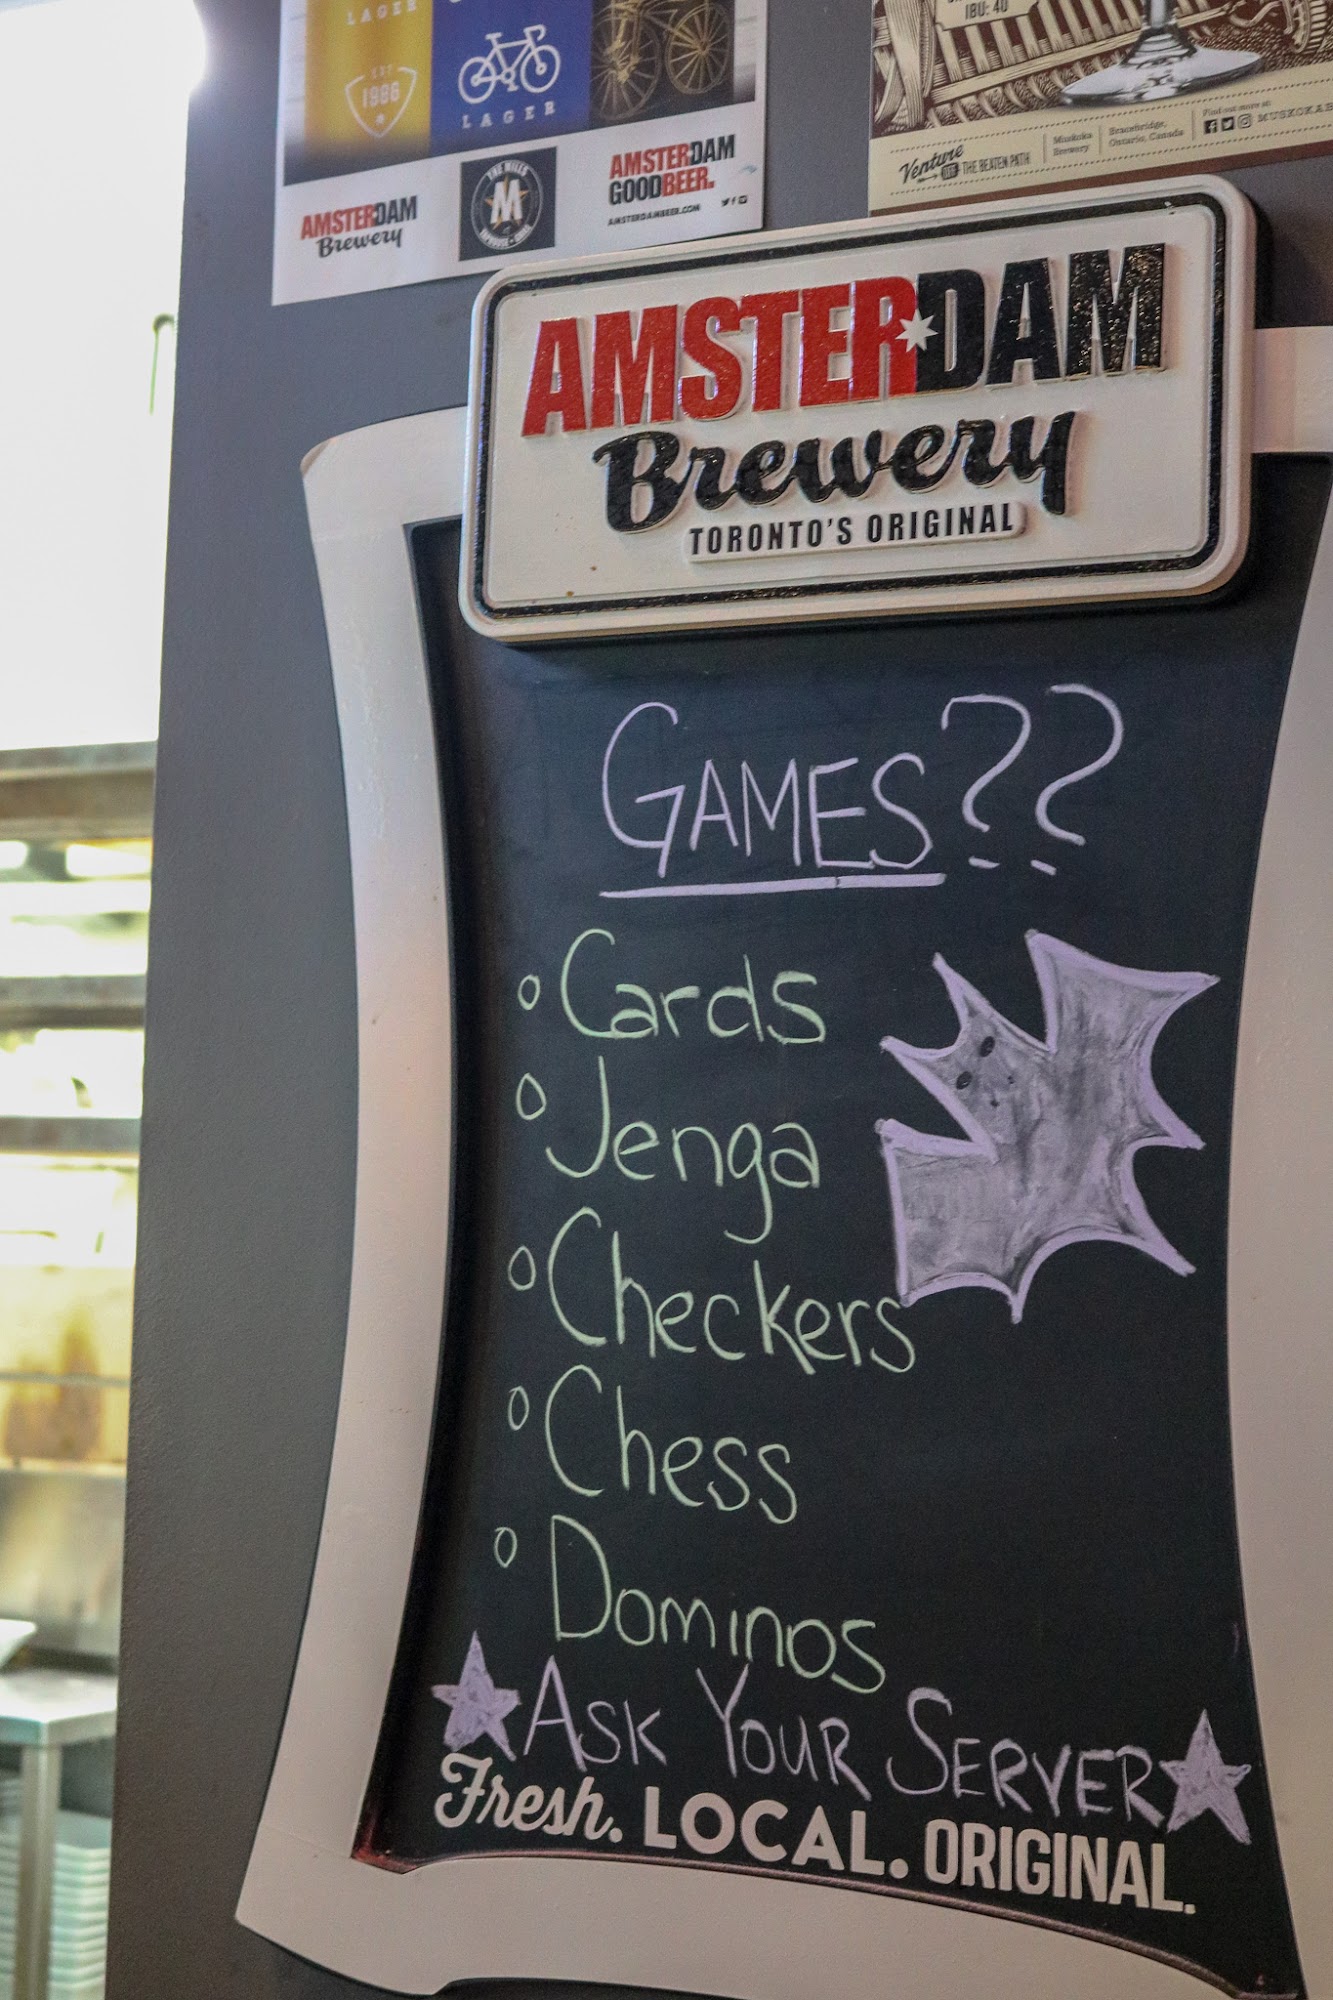 LAGER
EST
1986
LAGER
AMSTERDAM
Brewery
THE MILES
M
AMSTERDAM
GOODBEER.
AMSTERDAMBEER.COM
IBU: 40
Venture OFF THE BEATEN PATH
Muskoka
Brewery
Bracebridge,
Ontario, Canada
Find out more at:
AMSTERDAM
Brewery
TORONTO'S ORIGINAL
GAMES??
Cards
Jenga
Checkers
Chess
Dominos
ASK YOUR SERVER
Fresh. LOCAL. ORIGINAL.